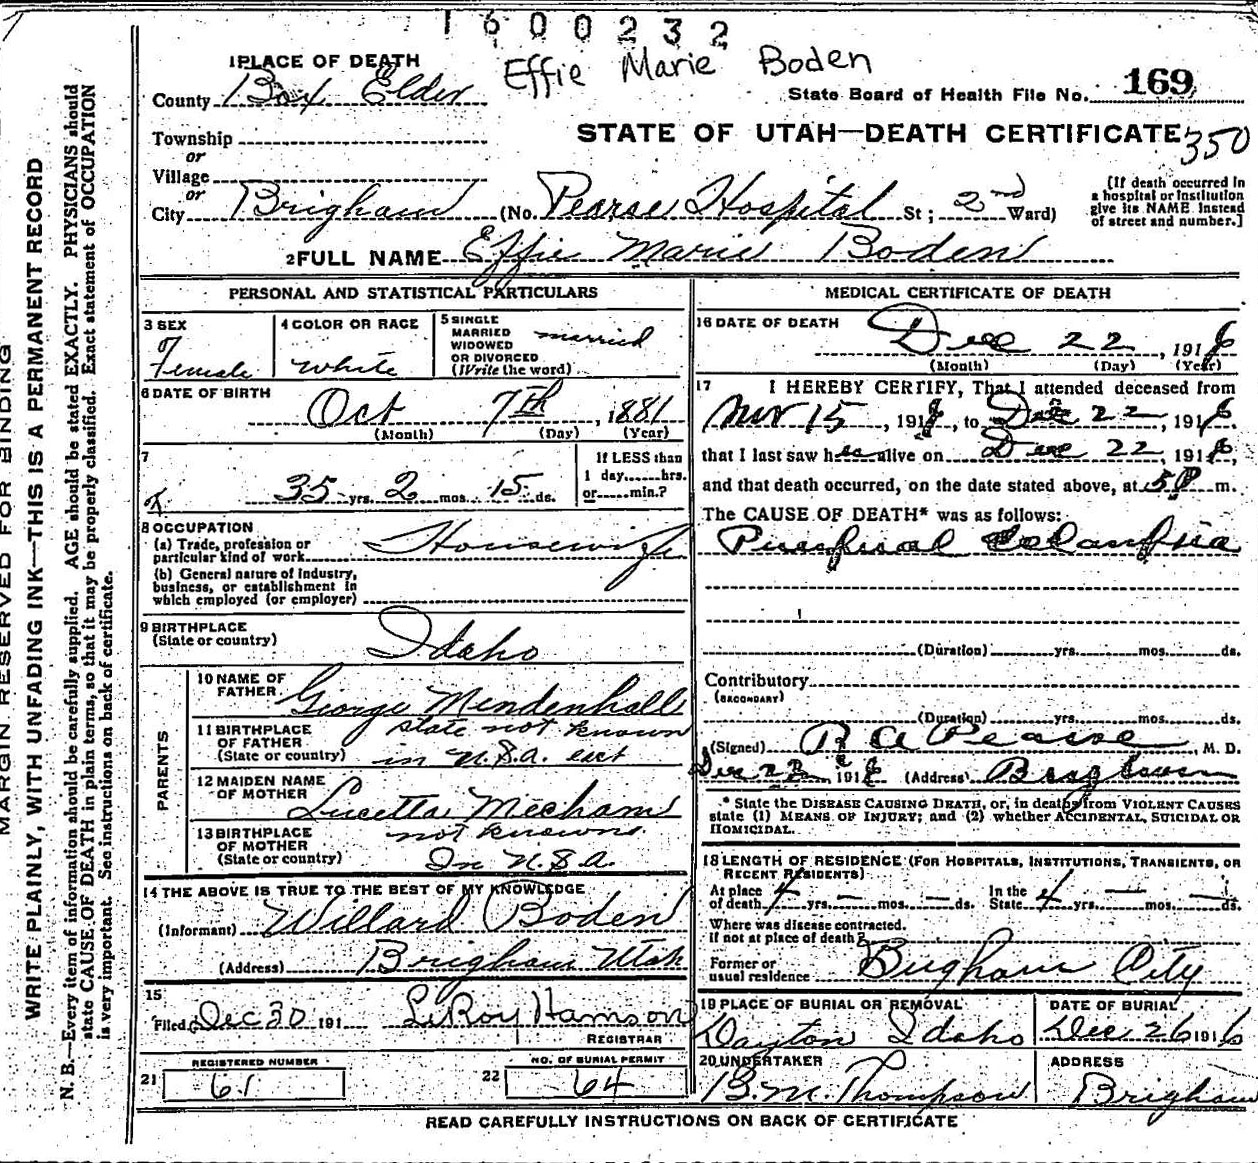 1600232
Effie Marie Boden
1 PLACE OF DEATH
County Box Elder
State Board of Health File No. 169
Township
STATE OF UTAH—DEATH CERTIFICATE 350
or
Village
or
City Brigham (No. Pearse Hospital St; 2nd Ward)
[If death occurred in
a hospital or institution
give its NAME instead
of street and number.]
2 FULL NAME Effie Marie Boden
PERSONAL AND STATISTICAL PARTICULARS
3 SEX
Female
4 COLOR OR RACE
White
5 SINGLE
MARRIED
WIDOWED
OR DIVORCED
(Write the word)
married
6 DATE OF BIRTH
Oct 7th, 1881
(Month) (Day) (Year)
7
35 yrs. 2 mos. 15 ds.
If LESS than
1 day......hrs.
or......min.?
8 OCCUPATION
(a) Trade, profession or
particular kind of work Housewife
(b) General nature of industry,
business, or establishment in
which employed (or employer)
9 BIRTHPLACE
(State or country) Idaho
PARENTS
10 NAME OF
FATHER George Mendenhall
11 BIRTHPLACE
OF FATHER
(State or country)
state not known
in U.S.A. east
12 MAIDEN NAME
OF MOTHER Lucetta Mecham
13 BIRTHPLACE
OF MOTHER
(State or country)
not known
In U.S.A.
14 THE ABOVE IS TRUE TO THE BEST OF MY KNOWLEDGE
(Informant) Willard Boden
(Address) Brigham Utah
15
Filed Dec 30 191 LeRoy
REGISTRAR
REGISTERED NUMBER
21 61
NO. OF BURIAL PERMIT
22 64
MEDICAL CERTIFICATE OF DEATH
16 DATE OF DEATH
Dec 22, 1916
(Month) (Day) (Year)
17 I HEREBY CERTIFY, That I attended deceased from
Nov 15, 1916, to Dec 22, 1916
that I last saw her alive on Dec 22, 1916,
and that death occurred, on the date stated above, at 5 P m.
The CAUSE OF DEATH* was as follows:
(Duration) yrs. mos. ds.
Contributory
(SECONDARY)
(Duration) yrs. mos. ds.
(Signed) R A Pearse, M. D.
Dec 22, 1916 (Address) Brigham
* State the DISEASE CAUSING DEATH, or, in deaths from VIOLENT CAUSES
state (1) MEANS OF INJURY; and (2) whether ACCIDENTAL, SUICIDAL OR
HOMICIDAL.
18 LENGTH OF RESIDENCE (FOR HOSPITALS, INSTITUTIONS, TRANSIENTS, OR
RECENT RESIDENTS)
At place
of death 4 yrs. — mos. — ds.
In the
State 4 yrs. — mos. — ds.
Where was disease contracted.
If not at place of death?
Former or
usual residence Brigham City
19 PLACE OF BURIAL OR REMOVAL
Dayton Idaho
DATE OF BURIAL
Dec 26 1916
20 UNDERTAKER
B. M. Thompson
ADDRESS
Brigham
READ CAREFULLY INSTRUCTIONS ON BACK OF CERTIFICATE
MARGIN RESERVED FOR BINDING
WRITE PLAINLY, WITH UNFADING INK—THIS IS A PERMANENT RECORD
N. B.—Every item of information should be carefully supplied. AGE should be stated EXACTLY. PHYSICIANS should
state CAUSE OF DEATH in plain terms, so that it may be properly classified. Exact statement of OCCUPATION
is very important. See instructions on back of certificate.